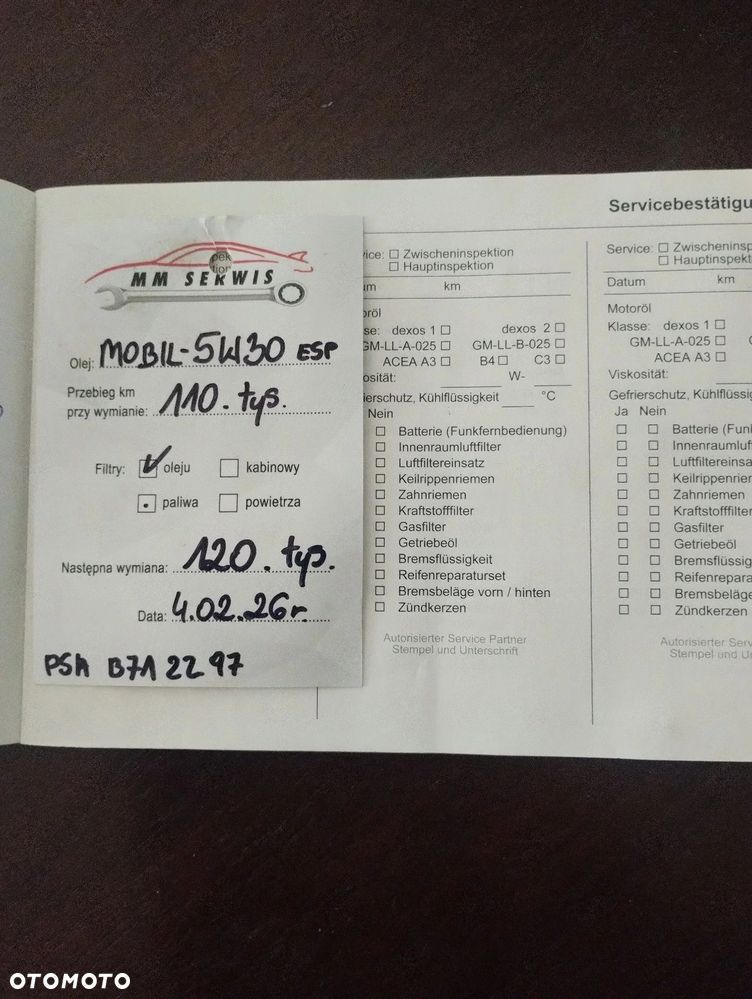 MM SERWIS
Olej: MOBIL-5W30 ESP
Przebieg km
przy wymianie: 110.tys.
Filtry: oleju kabinowy
paliwa powietrza
Następna wymiana: 120.tys.
Data: 4.02.26r.
PSA B71 2297
Zwischeninspektion
Hauptinspektion
km
dexos 1 dexos 2
GM-LL-A-025 GM-LL-B-025
ACEA A3 B4 C3
W-
Kühlflüssigkeit °C
Nein
Batterie (Funkfernbedienung)
Innenraumluftfilter
Luftfiltereinsatz
Keilrippenriemen
Zahnriemen
Kraftstofffilter
Gasfilter
Getriebeöl
Bremsflüssigkeit
Reifenreparaturset
Bremsbeläge vorn / hinten
Zündkerzen
Autorisierter Service Partner
Stempel und Unterschrift
Servicebestätigu
Service: Zwischeninsp
Hauptinspekti
Datum km
Motoröl
Klasse: dexos 1
GM-LL-A-025 G
ACEA A3
Viskosität:
Gefrierschutz, Kühlflüssig
Ja Nein
Batterie (Funk
Innenraumluf
Luftfiltereinsat
Keilrippenriem
Zahnriemen
Kraftstofffilter
Gasfilter
Getriebeöl
Bremsflüssig
Reifenrepara
Bremsbeläge
Zündkerzen
Autorisierter Serv
Stempel und U
OTOMOTO